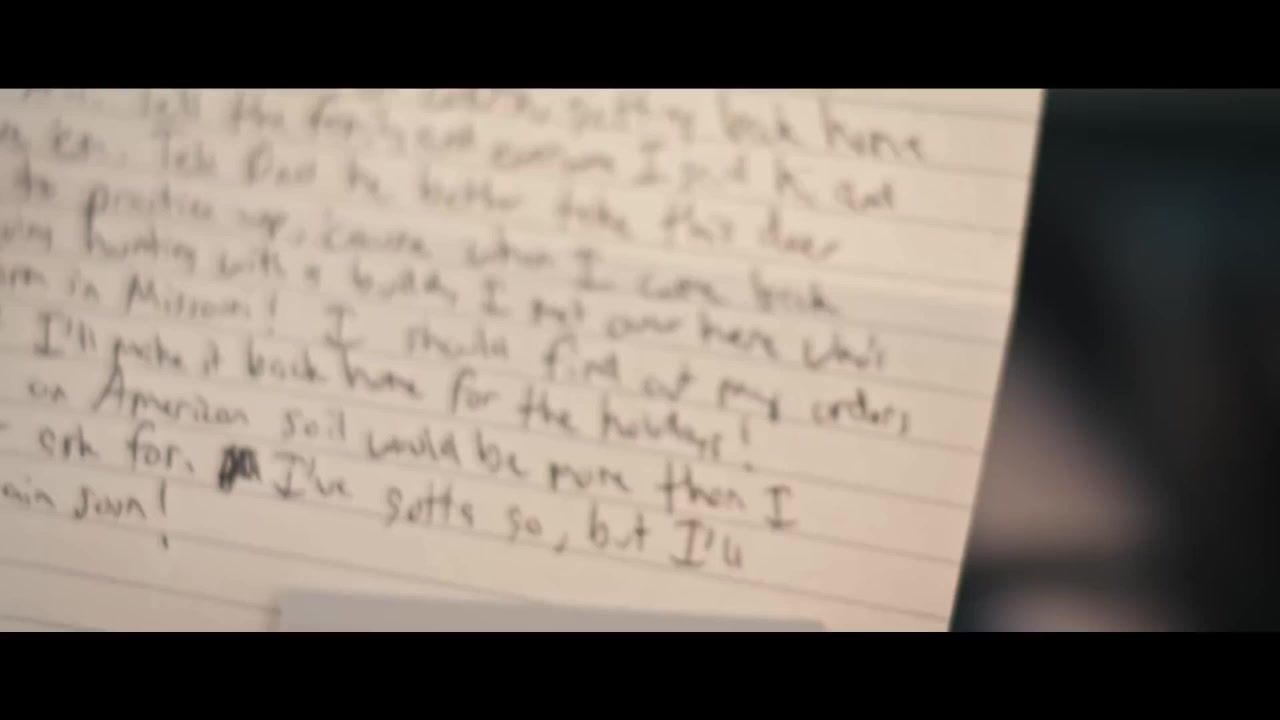 getting back home
Tell the family and everyone I said hi and
em. Tell Dad he better take this deer
to practice up, cause when I come back
hunting with a buddy I met over here who's
in Missouri! I should find out my orders
I'll make it back home for the holidays!
on American soil would be more than I
ask for. I've gotta go, but I'll
soon!